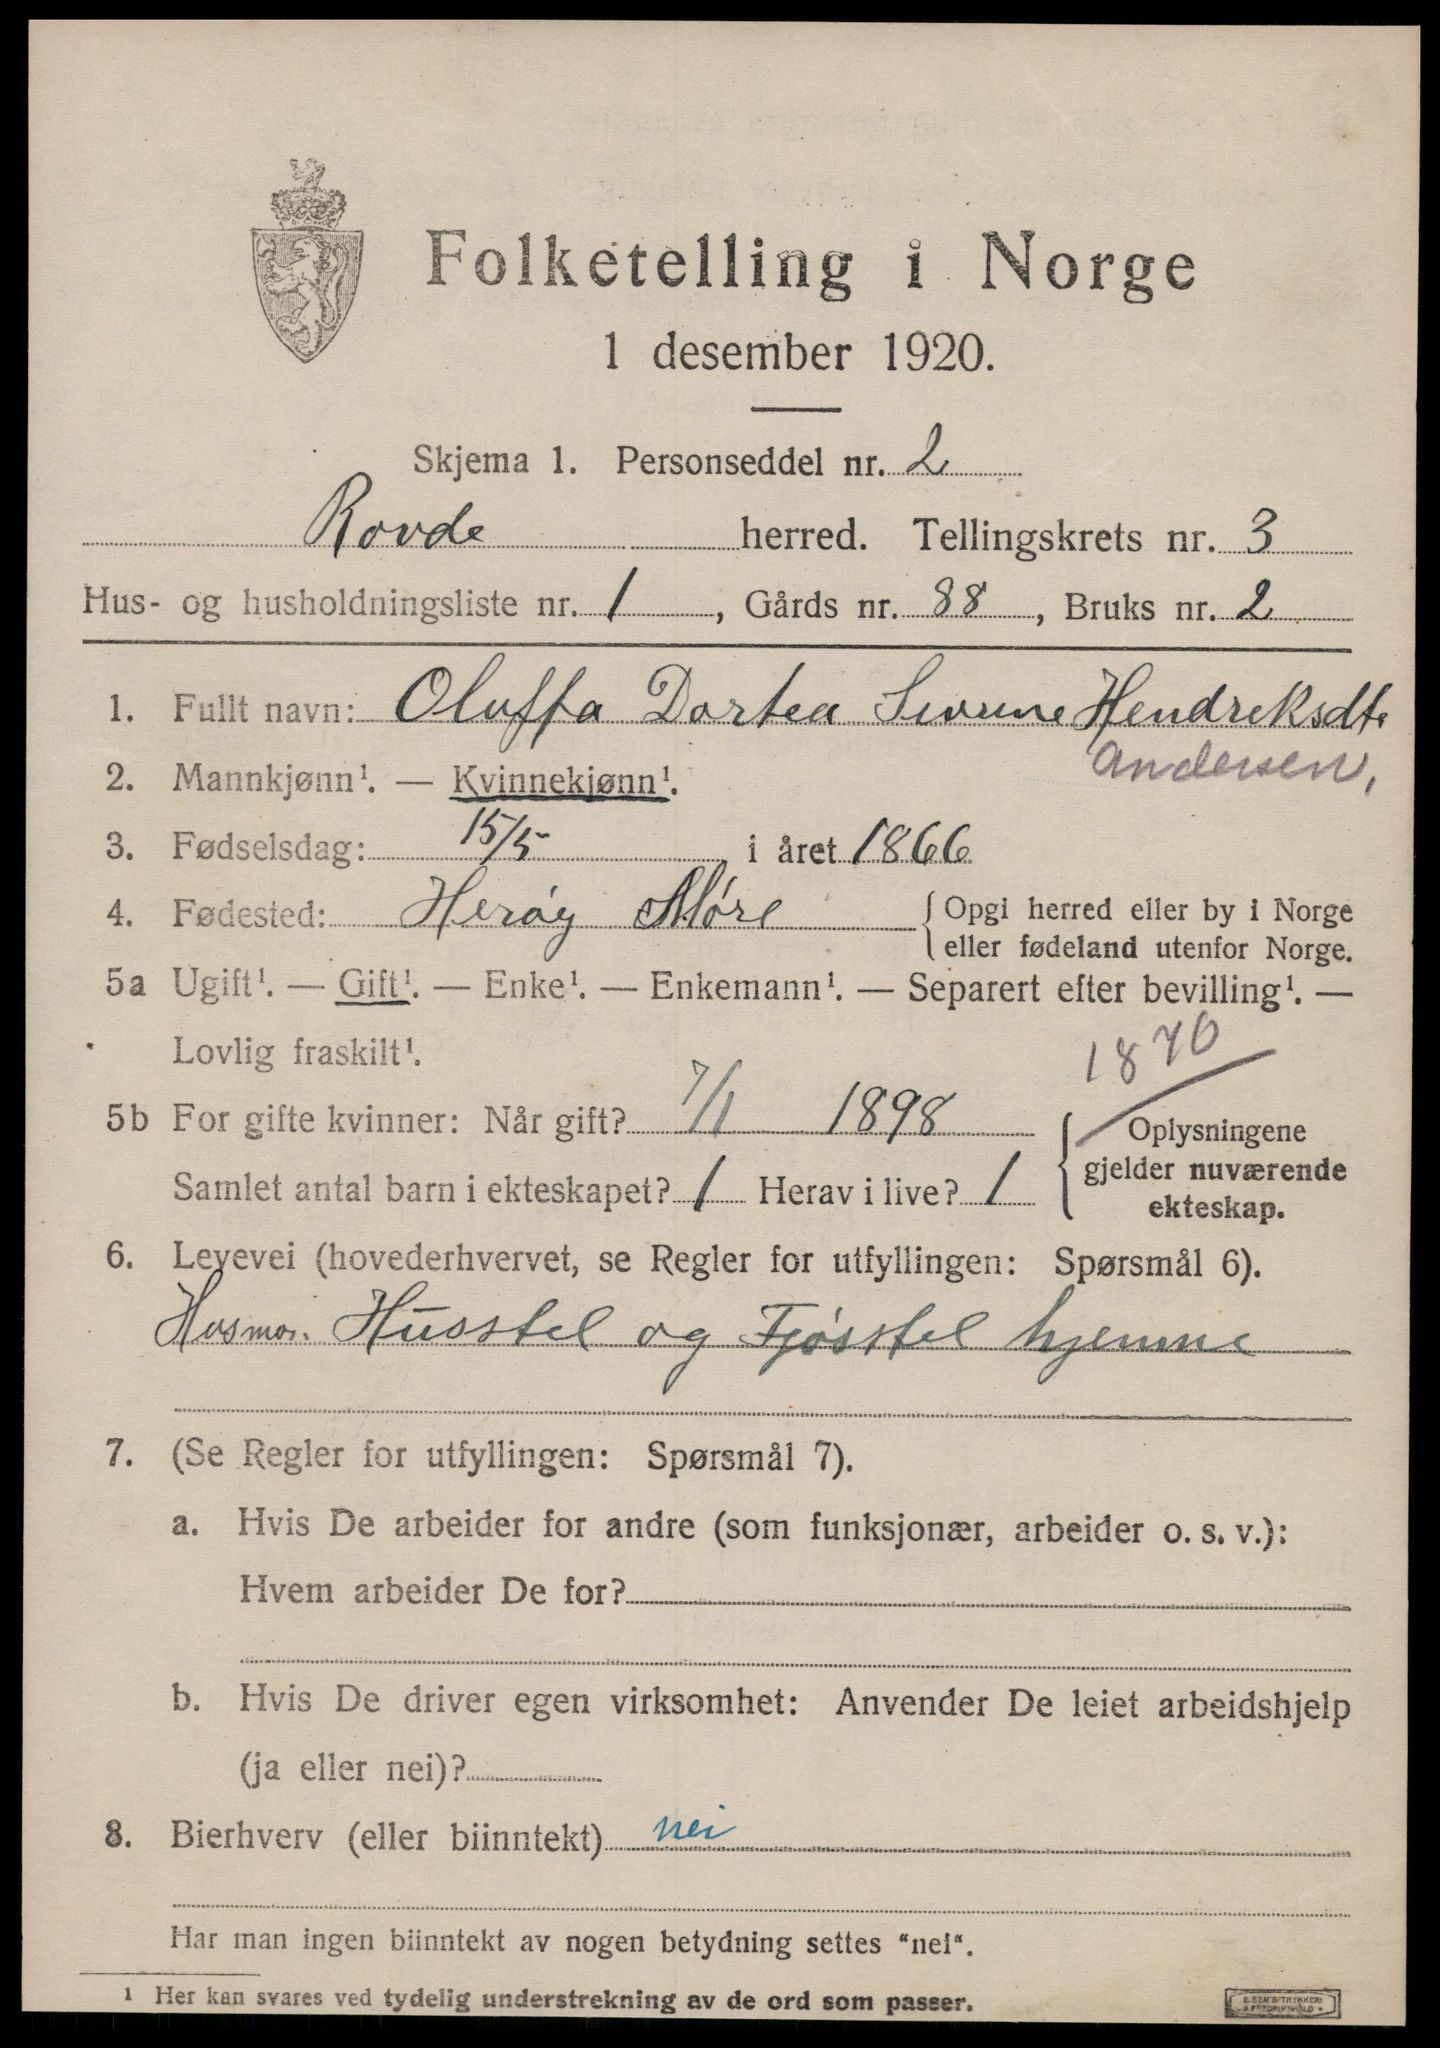 Folketelling i Norge
1 desember 1920.
Skjema 1. Personseddel nr. 2
Rovde herred. Tellingskrets nr. 3
Hus- og husholdningsliste nr. 1, Gårds nr. 88, Bruks nr. 2
1. Fullt navn: Oluffa Dortea Hendreksdtr
Andersen,
2. Mannkjønn¹. — Kvinnekjønn¹.
3. Fødselsdag: 15/5 i året 1866
4. Fødested: Herøy Møre { Opgi herred eller by i Norge
eller fødeland utenfor Norge.
5a Ugift¹. — Gift¹. — Enke¹. — Enkemann¹. — Separert efter bevilling¹. —
Lovlig fraskilt¹.
1870
5b For gifte kvinner: Når gift? 7/1 1898
Samlet antal barn i ekteskapet? 1 Herav i live? 1
{ Oplysningene
gjelder nuværende
ekteskap.
6. Levevei (hovederhvervet, se Regler for utfyllingen: Spørsmål 6).
Husmor. Husstel og Fjøsstel hjemme
7. (Se Regler for utfyllingen: Spørsmål 7).
a. Hvis De arbeider for andre (som funksjonær, arbeider o. s. v.):
Hvem arbeider De for?
b. Hvis De driver egen virksomhet: Anvender De leiet arbeidshjelp
(ja eller nei)?
8. Bierhverv (eller biinntekt) nei
Har man ingen biinntekt av nogen betydning settes "nei".
1 Her kan svares ved tydelig understrekning av de ord som passer.
E. SEM'S TRYKKERI
FREDRIKSHALD